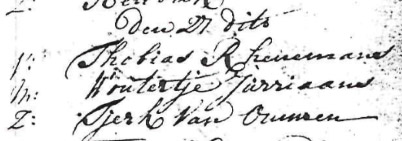 den 27 dito
v: Thobias Rhenemans
m: Woutertje Jurriaans
Z: Tjerk Van Ommren